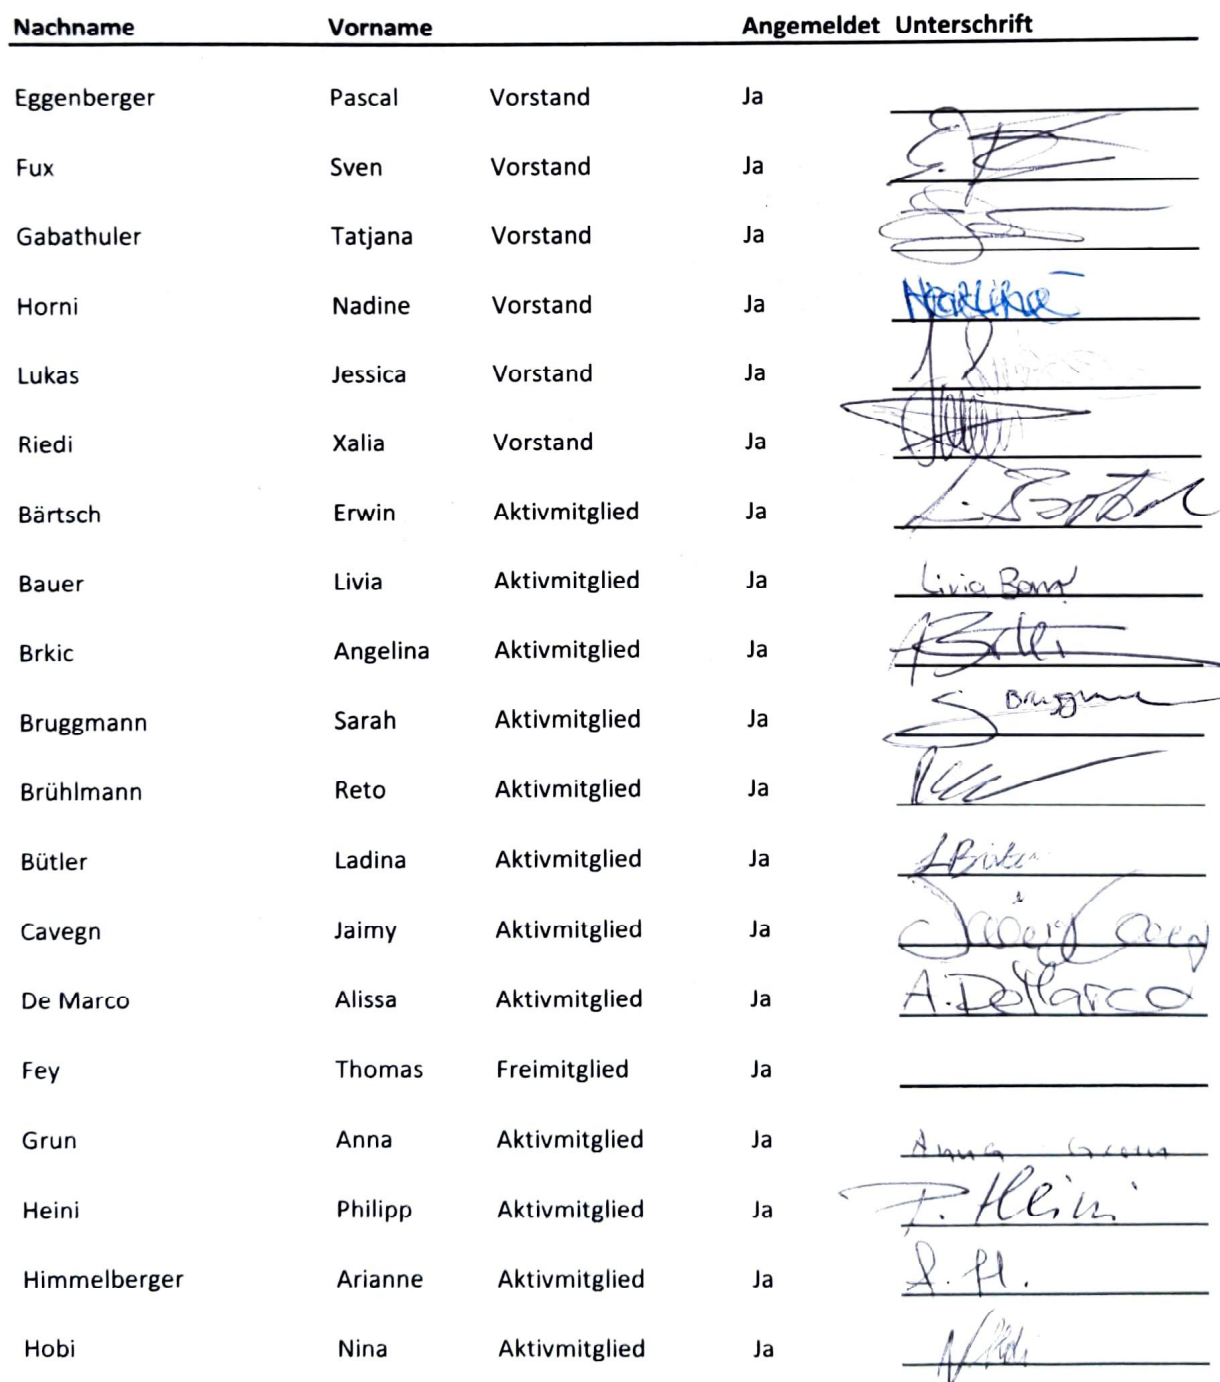 Nachname Vorname Angemeldet Unterschrift
Eggenberger Pascal Vorstand Ja
Fux Sven Vorstand Ja
Gabathuler Tatjana Vorstand Ja
Horni Nadine Vorstand Ja
Lukas Jessica Vorstand Ja
Riedi Xalia Vorstand Ja
Bärtsch Erwin Aktivmitglied Ja
Bauer Livia Aktivmitglied Ja Livia
Brkic Angelina Aktivmitglied Ja
Bruggmann Sarah Aktivmitglied Ja
Brühlmann Reto Aktivmitglied Ja
Bütler Ladina Aktivmitglied Ja
Cavegn Jaimy Aktivmitglied Ja
De Marco Alissa Aktivmitglied Ja A. DeMarco
Fey Thomas Freimitglied Ja
Grun Anna Aktivmitglied Ja Anna
Heini Philipp Aktivmitglied Ja P. Heini
Himmelberger Arianne Aktivmitglied Ja
Hobi Nina Aktivmitglied Ja